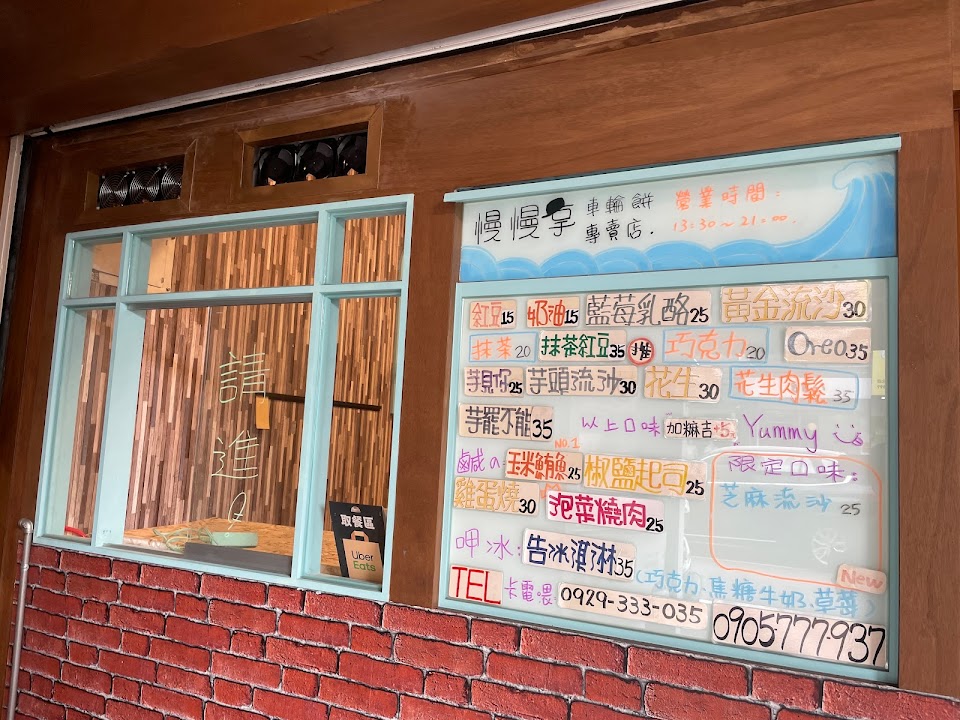 慢慢享 車輪餅專賣店.
營業時間:
13:30~21:00.
紅豆15 奶油15 藍莓乳酪25 黃金流沙30
抹茶20 抹茶紅豆35 推 巧克力20 Oreo35
芋見你25 芋頭流沙30 花生30 花生肉鬆35
芋罷不能35 以上口味 加麻吉+5元 Yummy
NO.1
鹹の: 玉米鮪魚25 椒鹽起司25
雞蛋燒30 泡菜燒肉25
限定口味:
芝麻流沙 25
New
呷冰: 告冰淇淋35
(巧克力.焦糖牛奶.草莓)
TEL 卡電喂 0929-333-035
0905-777-937
請進
取餐區
Uber
Eats